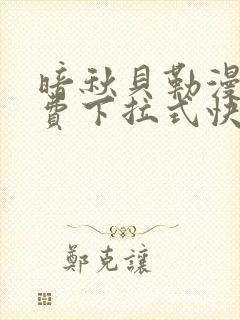 暗秋貝勒漫
費下拉式快
鄭克讓